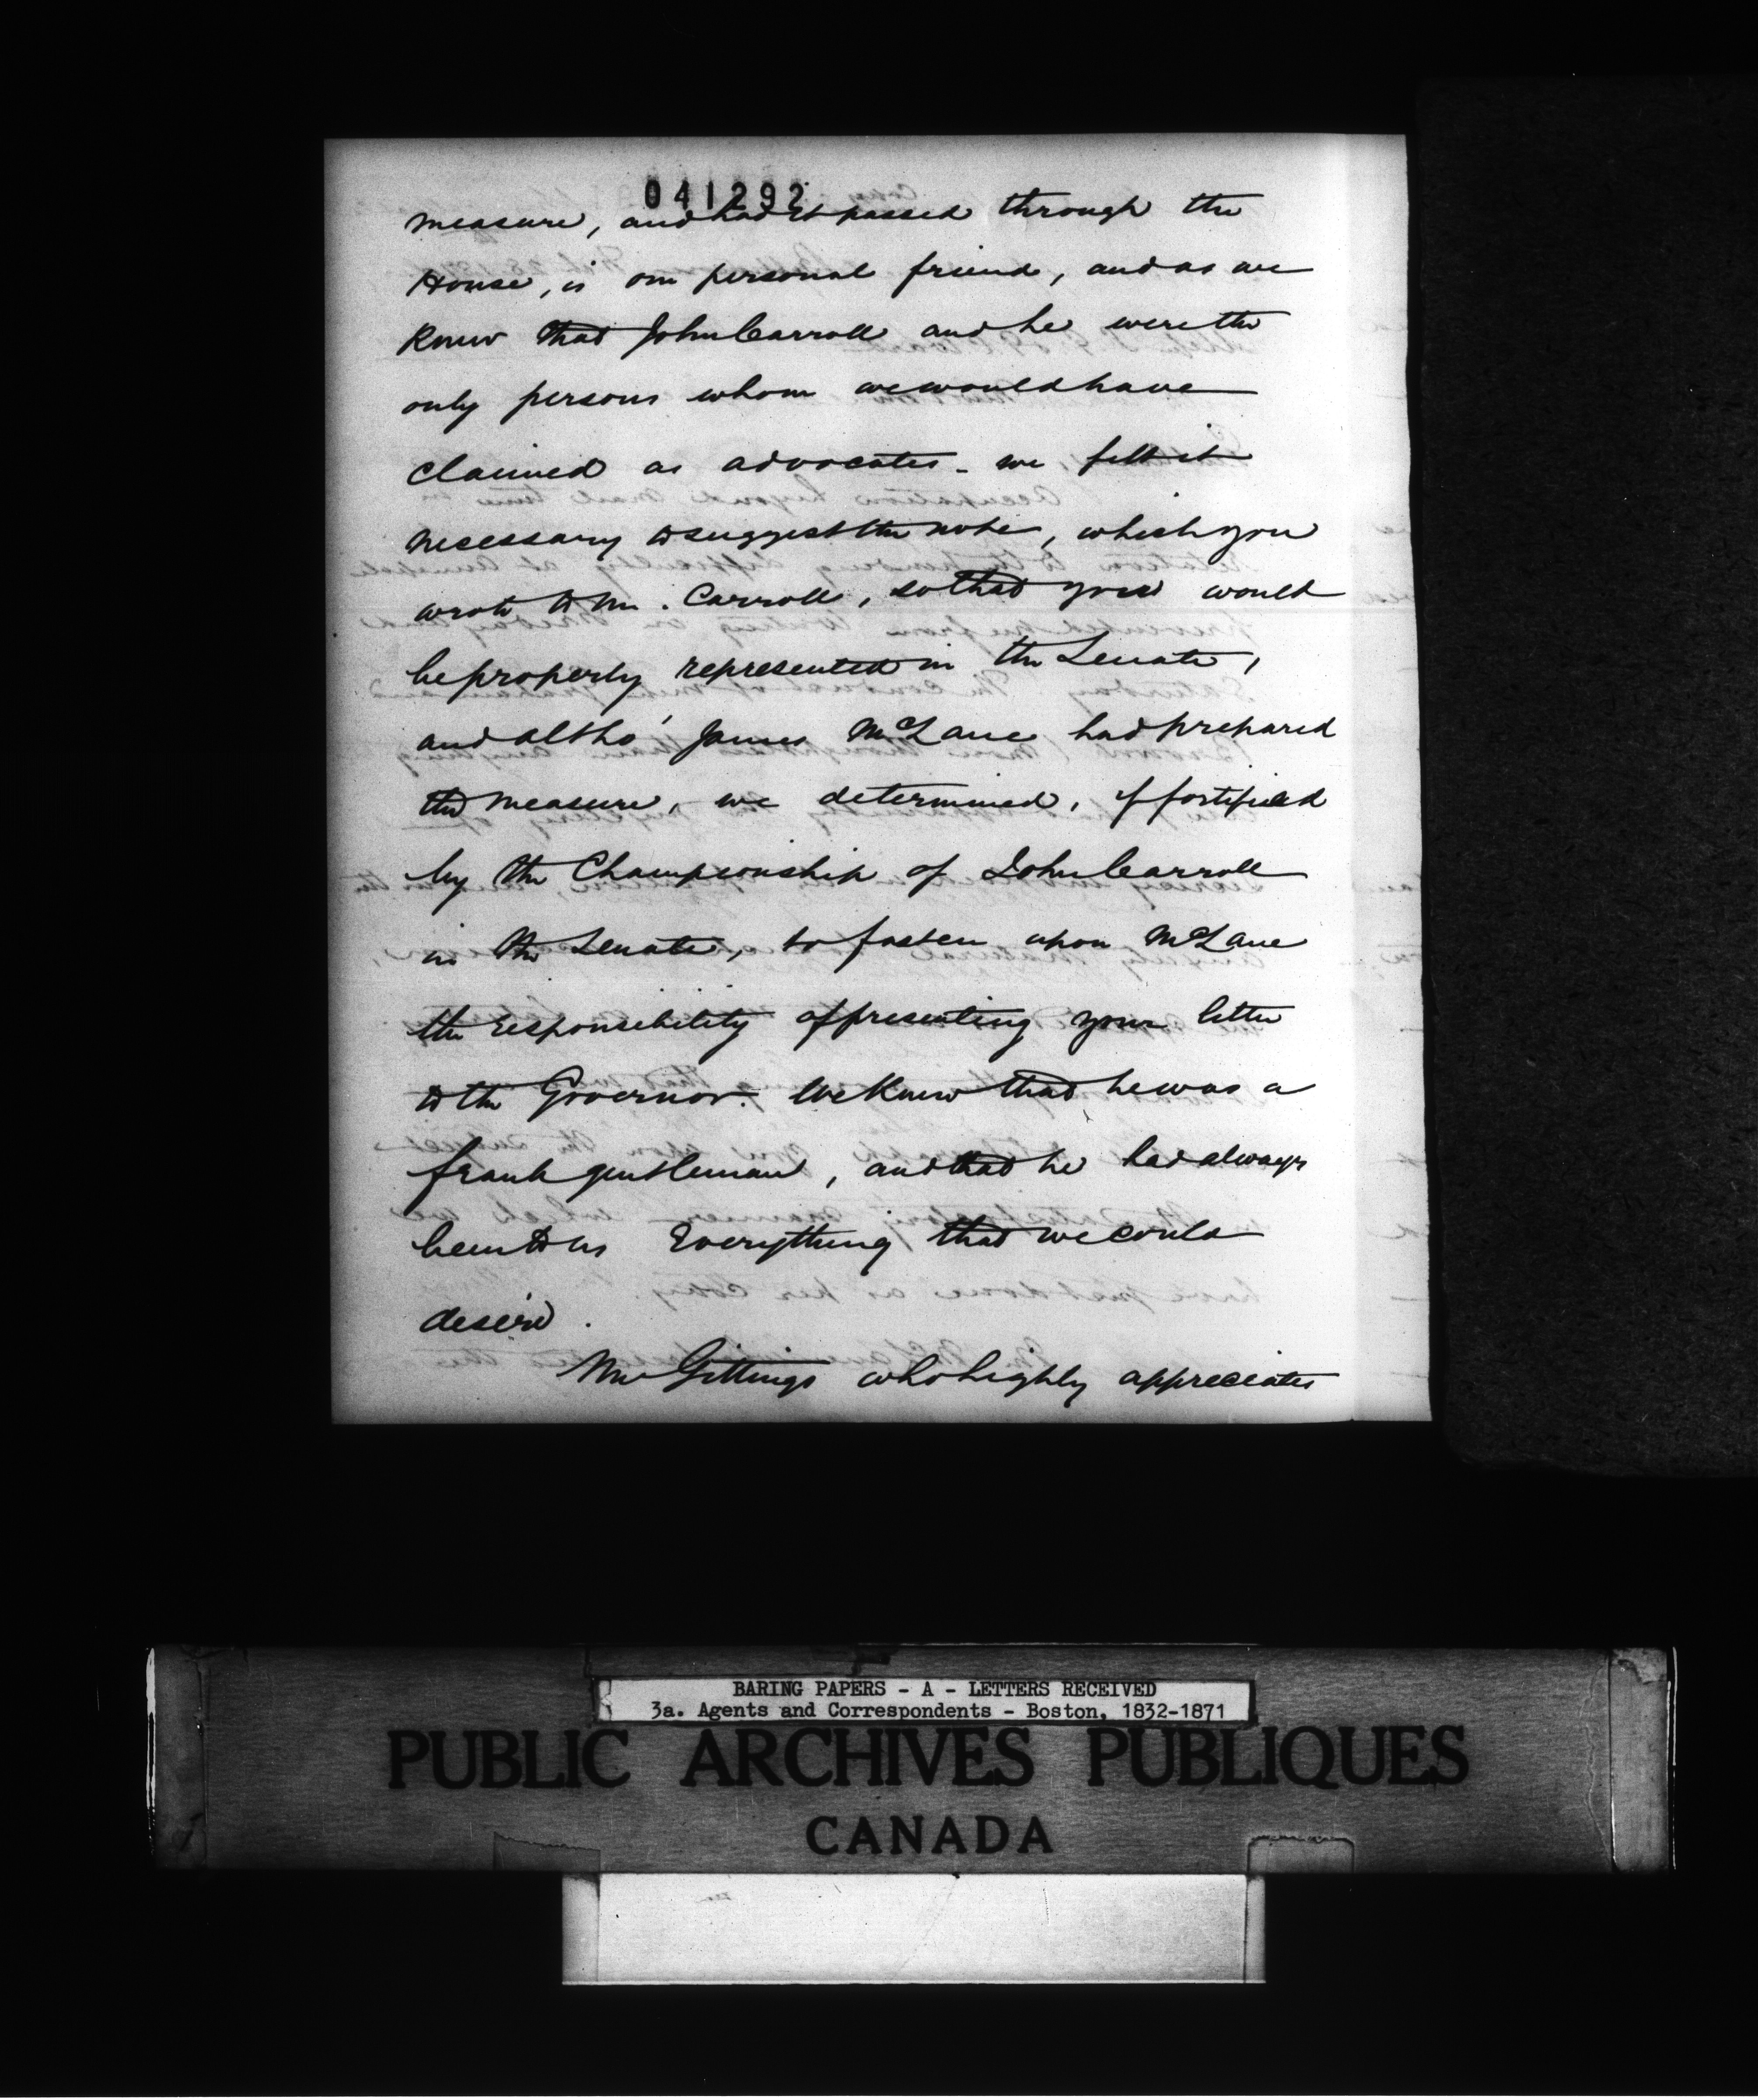 041292
measure, and had it passed through the
House, is our personal friend, and as we
knew that John Carroll and he were the
only persons whom we would have
claimed as advocates - we felt it
necessary to suggest the note, which you
wrote to Mr. Carroll, so that you would
be properly represented in the Senate,
and altho' James McLane had prepared
the measure, we determined, if fortified
by the Championship of John Carroll
in the Senate, to fasten upon McLane
the responsibility of presenting your letter
to the Governor. We knew that he was a
frank gentleman, and that he had always
been to us everything that we could
desire.
Mr Gittings who highly appreciates
BARING PAPERS - A - LETTERS RECEIVED
3a. Agents and Correspondents - Boston, 1832-1871
PUBLIC ARCHIVES PUBLIQUES
CANADA